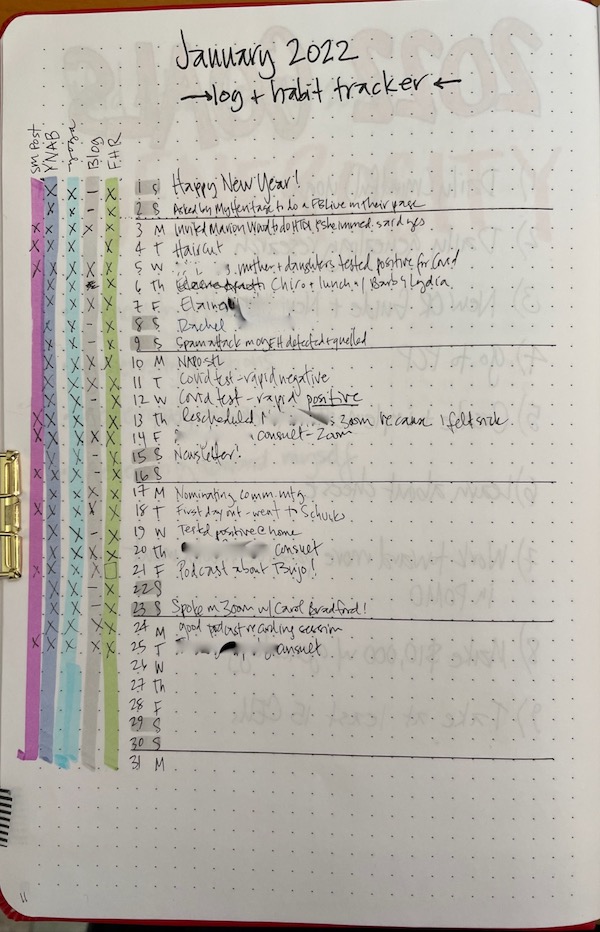 January 2022
→ log + habit tracker ←
SM Post YNAB yoga Blog FHR
1 S Happy New Year!
2 S Asked by MyHeritage to do a FB Live on their page
3 M Invited Marian Wood to do HTDI, & she immed. said yes
4 T Haircut
5 W mother + daughters tested positive for Covid
6 Th Chiro + lunch w/ Barb & Lydia
7 F Elaine
8 S Rachel
9 S Spam attack on detected + quelled
10 M NAPO-STL
11 T Covid test - rapid negative
12 W Covid test - rapid positive
13 Th Rescheduled zoom because I felt sick.
14 F consult - Zoom
15 S Newsletter!
16 S
17 M Nominating comm. mtg.
18 T First day out - went to Schnucks
19 W Tested positive @ home
20 Th consult
21 F Podcast about Bujo!
22 S
23 S Spoke on Zoom w/ Carol Bradford!
24 M good podcast recording session
25 T consult
26 W
27 Th
28 F
29 S
30 S
31 M
11